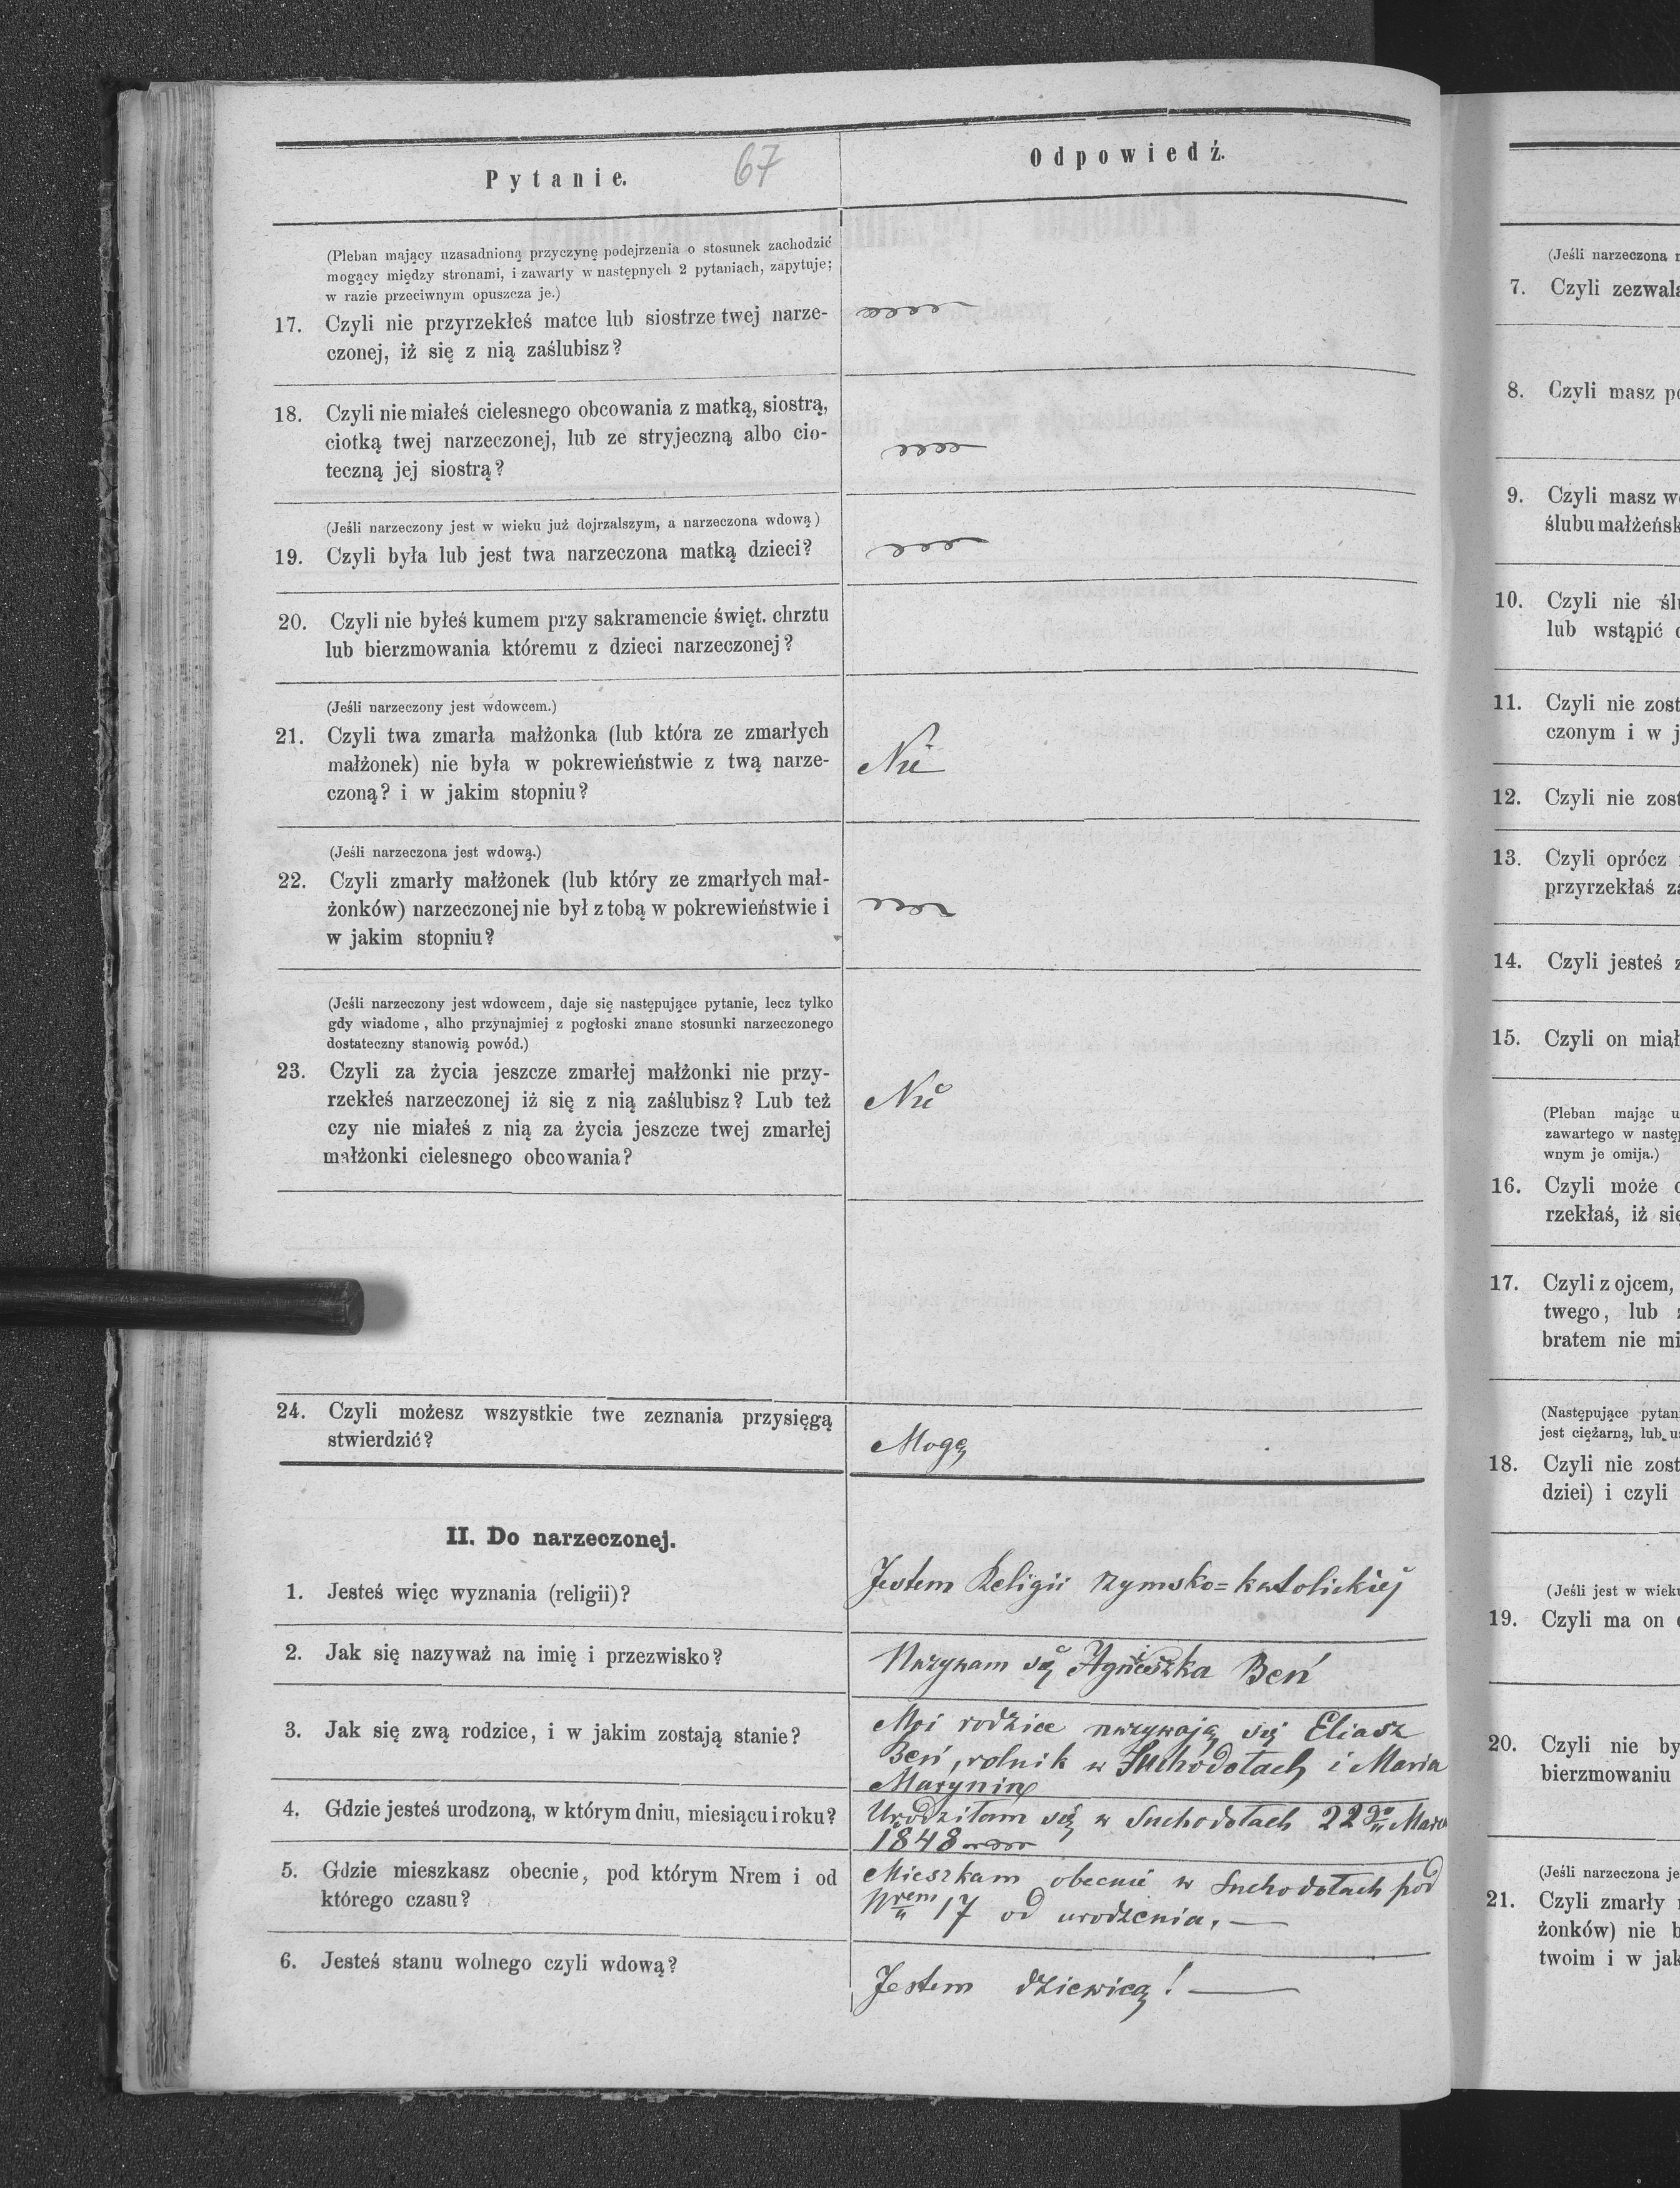 Pytanie.
67
Odpowiedź.
(Pleban mający uzasadnioną przyczynę podejrzenia o stosunek zachodzić
mogący między stronami, i zawarty w następnych 2 pytaniach, zapytuje;
w razie przeciwnym opuszcza je.)
17. Czyli nie przyrzekłeś matce lub siostrze twej narze-
czonej, iż się z nią zaślubisz?
18. Czyli nie miałeś cielesnego obcowania z matką, siostrą,
ciotką twej narzeczonej, lub ze stryjeczną albo cio-
teczną jej siostrą?
(Jeśli narzeczony jest w wieku już dojrzalszym, a narzeczona wdową)
19. Czyli była lub jest twa narzeczona matką dzieci?
20. Czyli nie byłeś kumem przy sakramencie święt. chrztu
lub bierzmowania któremu z dzieci narzeczonej?
(Jeśli narzeczony jest wdowcem.)
21. Czyli twa zmarła małżonka (lub która ze zmarłych
małżonek) nie była w pokrewieństwie z twą narze-
czoną? i w jakim stopniu?
Nie
(Jeśli narzeczona jest wdową.)
22. Czyli zmarły małżonek (lub który ze zmarłych mał-
żonków) narzeczonej nie był z tobą w pokrewieństwie i
w jakim stopniu?
(Jeśli narzeczony jest wdowcem, daje się następujące pytanie, lecz tylko
gdy wiadome, alho przynajmiej z pogłoski znane stosunki narzeczonego
dostateczny stanowią powód.)
23. Czyli za życia jeszcze zmarłej małżonki nie przy-
rzekłeś narzeczonej iż się z nią zaślubisz? Lub też
czy nie miałeś z nią za życia jeszcze twej zmarłej
małżonki cielesnego obcowania?
Nie
24. Czyli możesz wszystkie twe zeznania przysięgą
stwierdzić?
Mogę
II. Do narzeczonej.
1. Jesteś więc wyznania (religii)?
Jestem Religii rzymsko=katolickiej
2. Jak się nazyważ na imię i przezwisko?
Nazywam się Agnieszka Beń
3. Jak się zwą rodzice, i w jakim zostają stanie?
Moi rodzice nazywają się Eliasz
Beń, rolnik w Suchodołach i Maria
4. Gdzie jesteś urodzoną, w którym dniu, miesiącu i roku?
Urodziłam się w Suchodołach 22go
1848
5. Gdzie mieszkasz obecnie, pod którym Nrem i od
którego czasu?
Mieszkam obecnie w Suchodołach pod
Nrem 17 od urodzenia. —
6. Jesteś stanu wolnego czyli wdową?
Jestem dziewicą! —
(Jeśli narzeczona
7. Czyli zezwala
8. Czyli masz
9. Czyli masz
ślubu małżeńsk
10. Czyli nie
lub wstąpić
11. Czyli nie zost
czonym i w j
12. Czyli nie zost
13. Czyli oprócz
przyrzekłaś
14. Czyli jesteś
15. Czyli on miał
(Pleban mając u
zawartego w nastę
wnym je omija.)
16. Czyli może
rzekłaś, iż się
17. Czyli z ojcem,
twego, lub
bratem nie mi
(Następujące pytan
jest ciężarną, lub u
18. Czyli nie zost
dziei) i czyli
(Jeśli jest w wieku
19. Czyli ma on
20. Czyli nie by
bierzmowaniu
(Jeśli narzeczona je
21. Czyli zmarły
żonków) nie b
twoim i w jak